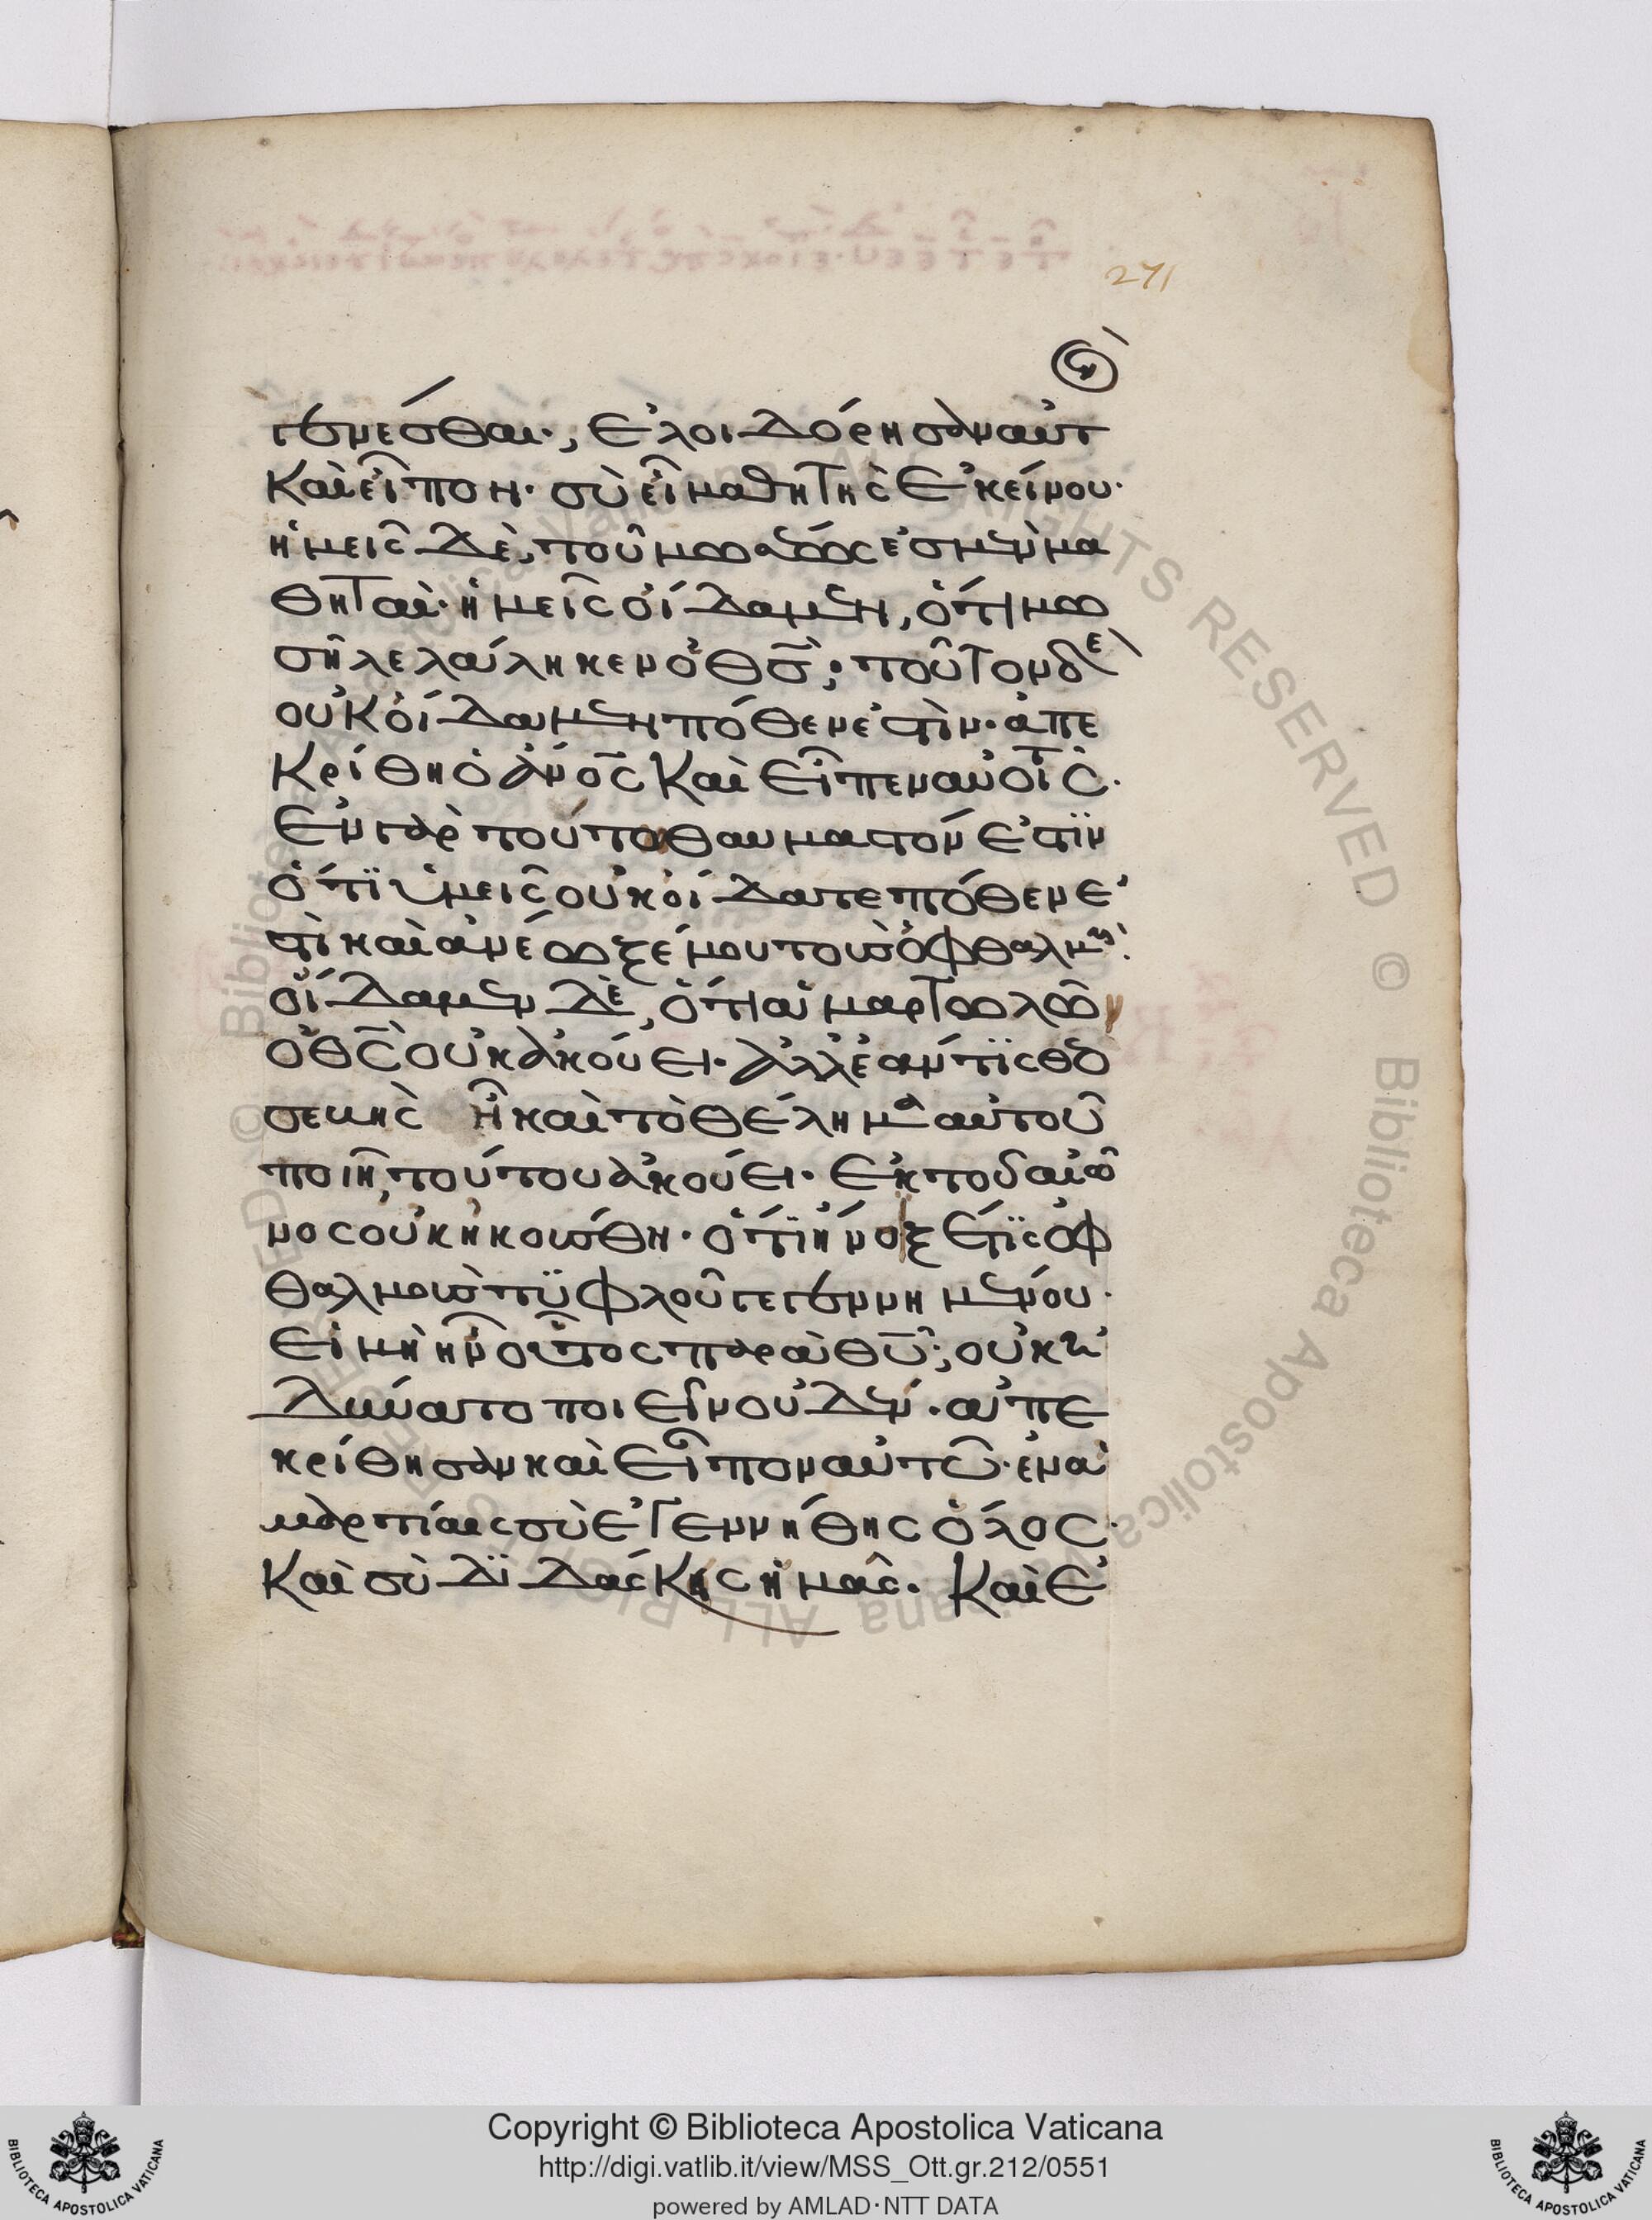 271
γενέσθαι·, ἐλοιδόρησαν αὐτ
καὶ εἶπον· σὺ εἶ μαθητὴς ἐκείνου·
ἡμεῖς δὲ, τοῦ μωσέως ἐσμὲν μα
θηταί· ἡμεῖς οἴδαμεν, ὅτι μω
σῆ λελάληκεν ὁ θσ̅· τοῦτον δὲ
οὐκ οἴδαμεν πόθεν ἐστὶν· ἀπε
κρίθη ὁ ἀνο̅ς καὶ εἶπεν αὐτοῖς·
ἐν γὰρ τούτο θαυμαστόν ἐστϊν
ὅτϊ ὑμεῖς οὐκ οἴδατε πόθεν ἐ
στὶ καὶ ἀνέωξέ μου τοὺς ὀφθαλμοὺς·
οἴδαμεν δὲ, ὅτι ἁμαρτωλῶν
ὁ θς̅ οὐκ ἀκούει· ἀλλ' ἐάν τϊς θεο
σεβὴς ἦ καὶ τὸ θέλημα αὐτοῦ
ποιῆ, τούτου ἀκούει· ἐκ τοῦ αἰῶ
νος οὐκ ἠκούσθη· ὅτϊ ἤνοιξέ τϊς ὀφ
θαλμοὺς τϋφλοῦ γεγεννημένου·
εἰ μὴ ἦν οὗτος παρὰ θυ̅·, οὐκ ἠ
δύνατο ποιεῖν οὐδέν· ἀπε
κρίθησαν καὶ εἶπον αὐτῶ· ἐν ἁ
μαρτίαις σὺ ἐγεννήθης ὅλος·
καὶ σὺ δϊδάσκης ἡμᾶς. καὶ ἐ
© Biblioteca Apostolica Vaticana ALL RIGHTS RESERVED
Copyright © Biblioteca Apostolica Vaticana
http://digi.vatlib.it/view/MSS_Ott.gr.212/0551
powered by AMLAD·NTT DATA
BIBLIOTECA APOSTOLICA VATICANA
BIBLIOTECA APOSTOLICA VATICANA